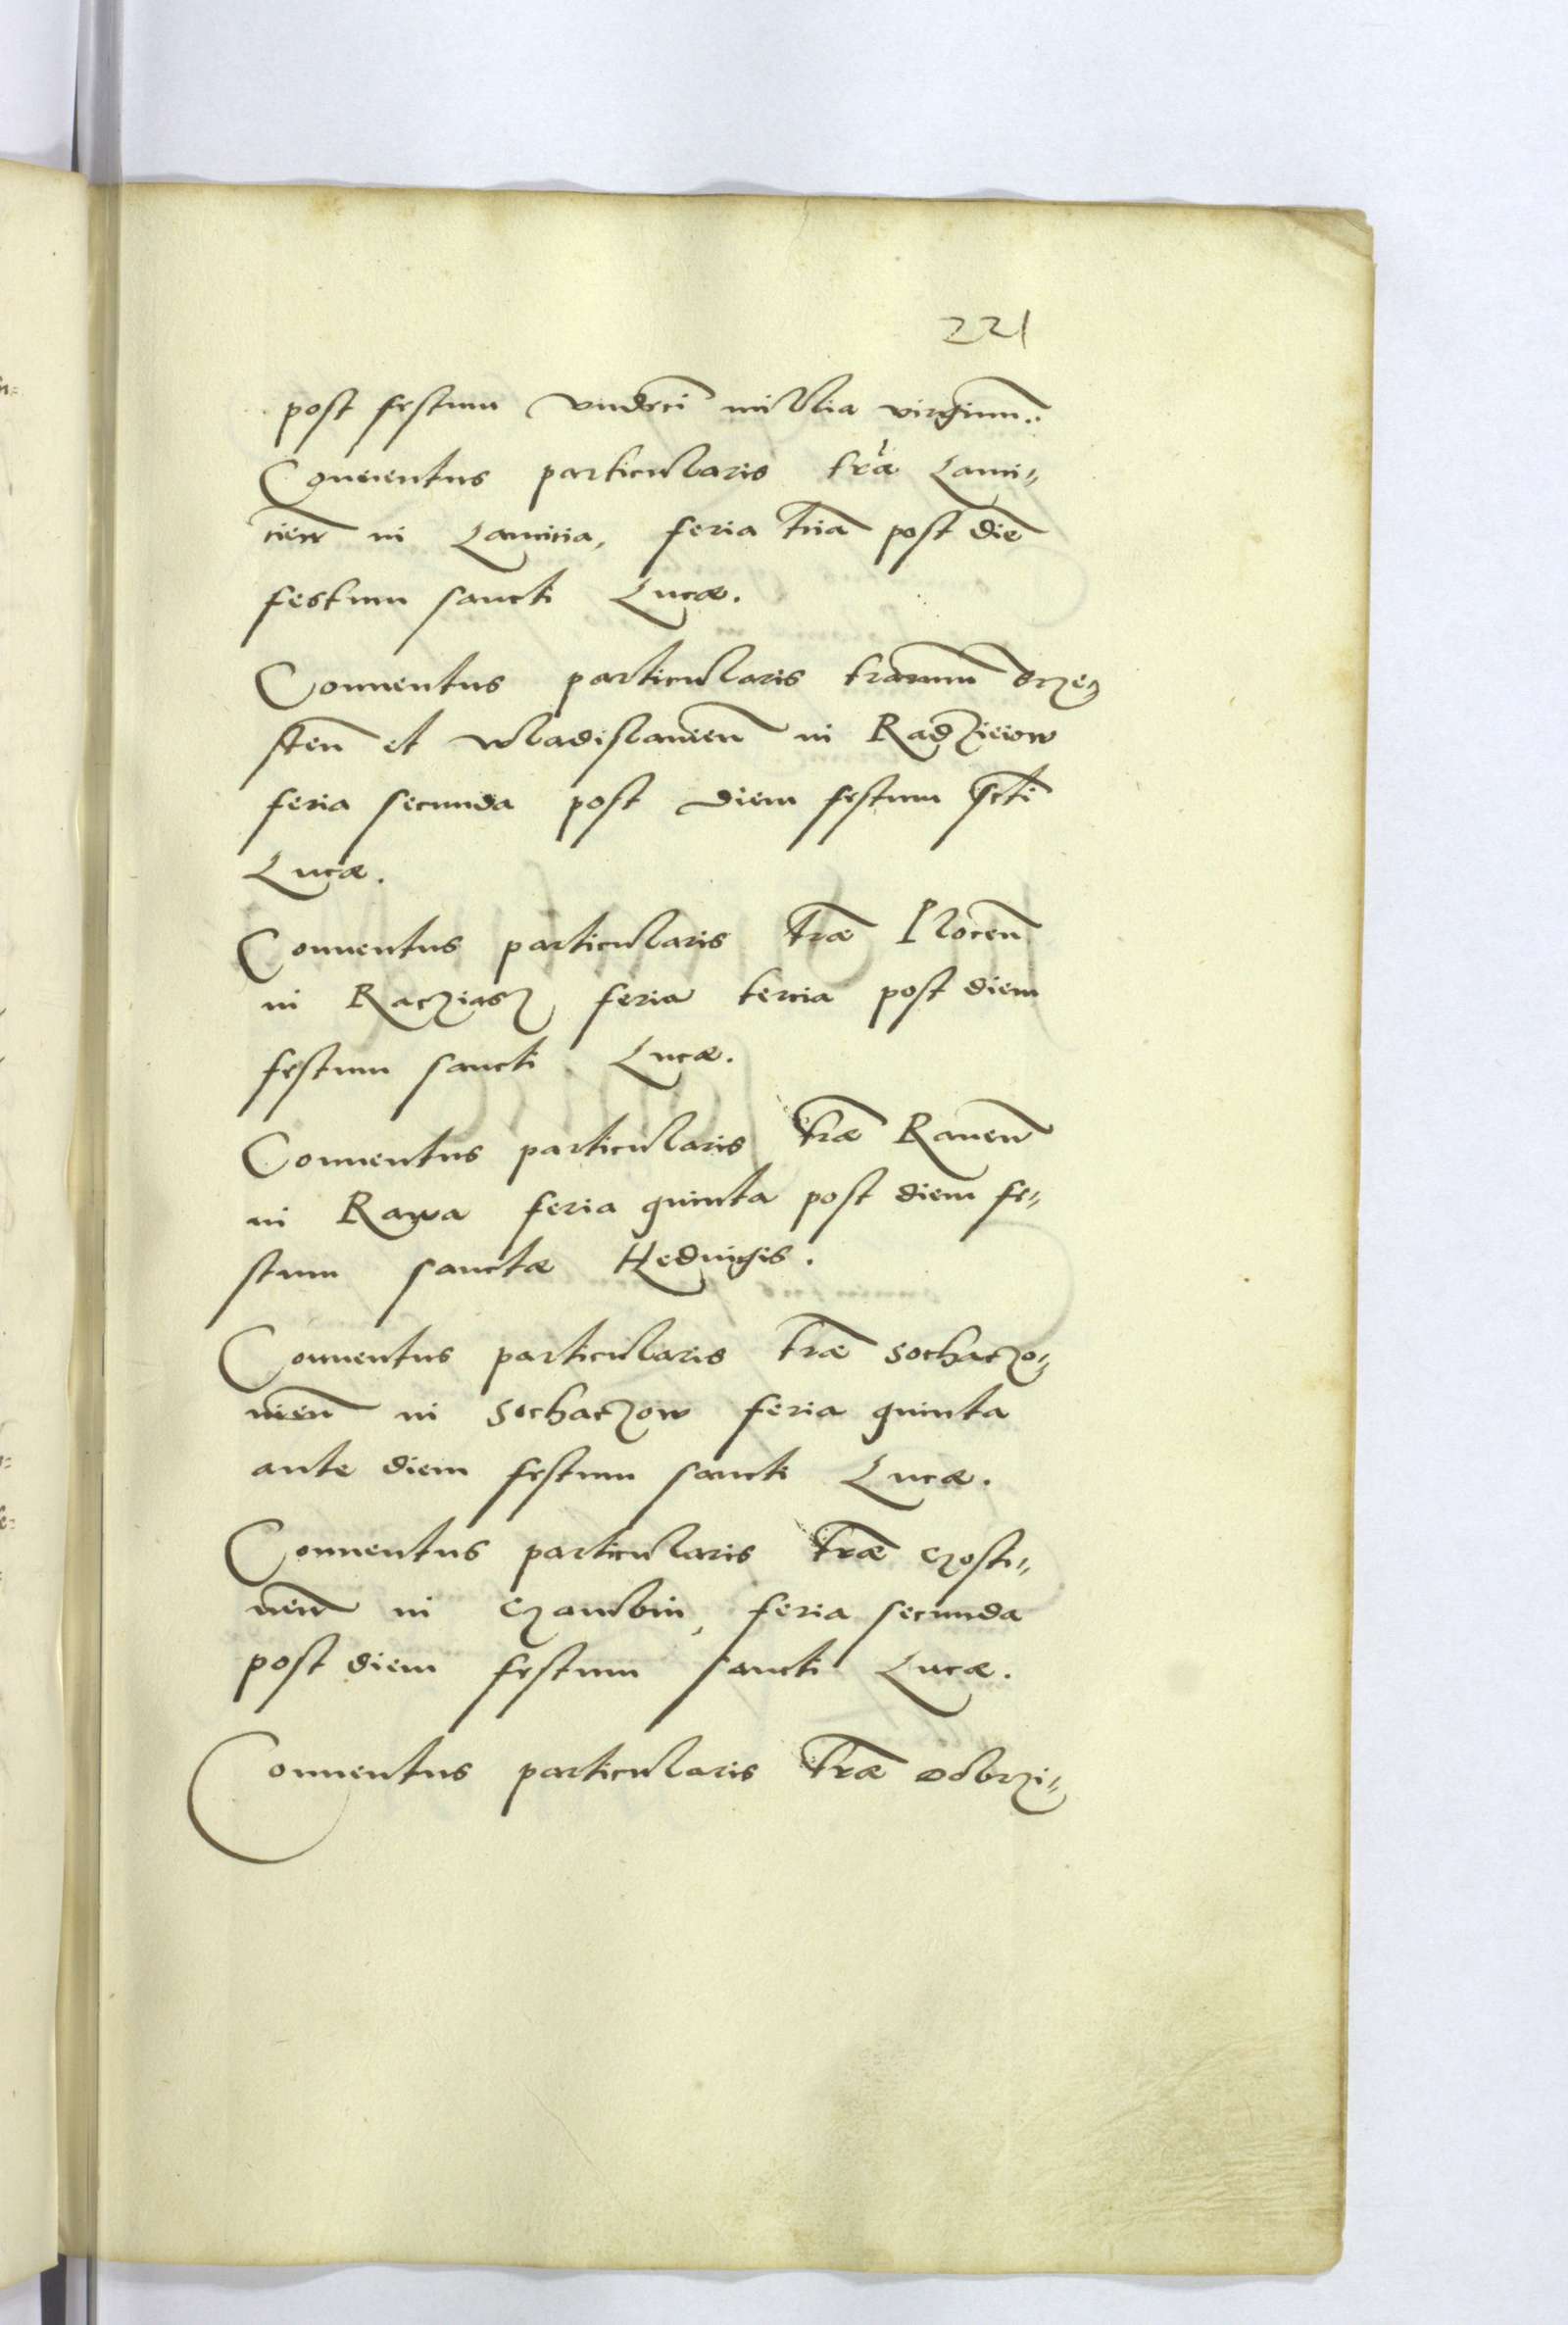 221
post festum vndeci millia virginum.
Conuentus particularis træ Lanci-
cien in Lancicia, feria tria post die
festum sancti Lucæ.
Conuentus particularis trarum Brze-
sten et Wladislauien in Radzieiow
feria secunda post diem festum scti
Lucæ.
Conuentus particularis træ Plocen
in Racziasz feria tercia post diem
festum sancti Lucæ.
Conuentus particularis træ Rauen
in Rawa feria quinta post diem fe-
stum sanctæ Heduigis.
Conuentus particularis træ Sochaczo-
uien in Sochaczow feria quinta
ante diem festum sancti Lucæ.
Conuentus particularis træ Gosti-
nen in Gąmbin, feria secunda
post diem festum sancti Lucæ.
Conuentus particularis træ Dobrzi-